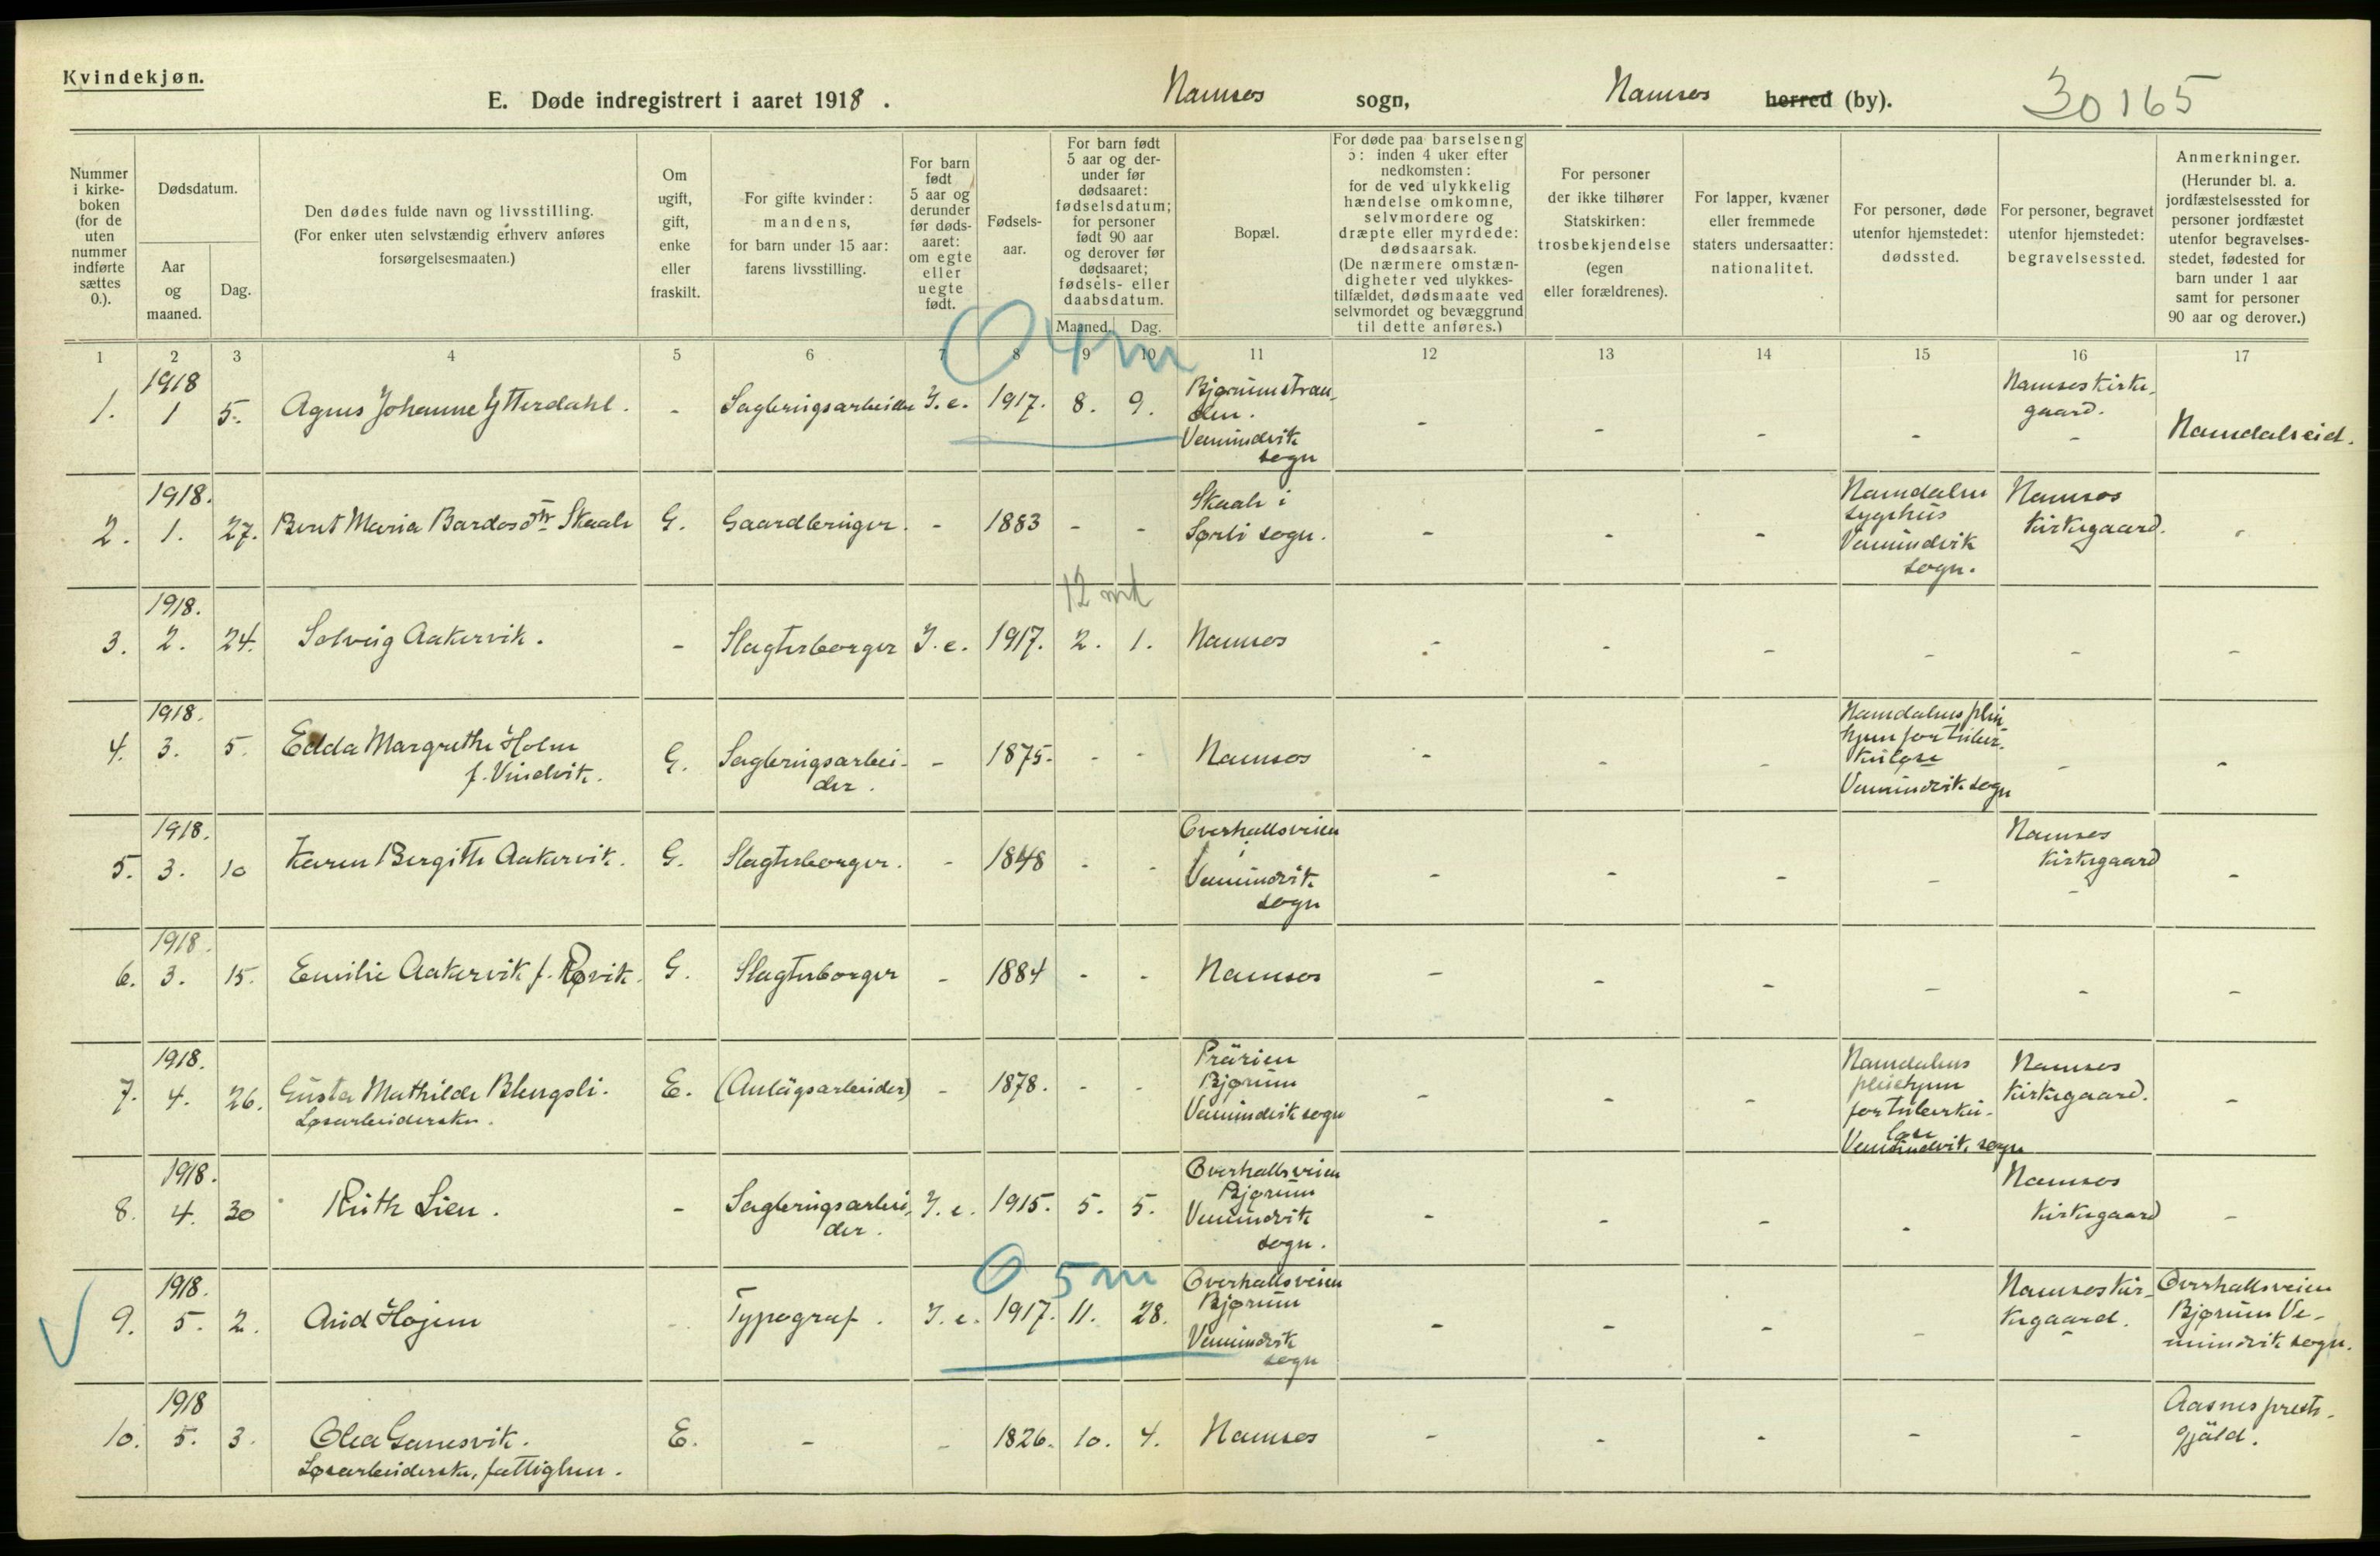 Kvindekjøn.
E. Døde indregistrert i aaret 1918.
Namsos sogn,
Namsos herred (by).
30165
Nummer i kirke-boken (for de uten nummer indførte sættes 0.).
Dødsdatum.
Aar og maaned.
Dag.
Den dødes fulde navn og livsstilling.
(For enker uten selvstændig erhverv anføres forsørgelsesmaaten.)
Om ugift, gift, enke eller fraskilt.
For gifte kvinder: mandens, for barn under 15 aar: farens livsstilling.
For barn født 5 aar og derunder før døds-aaret: om egte eller uegte født.
Fødsels-aar.
For barn født 5 aar og der-under før dødsaaret: fødselsdatum; for personer født 90 aar og derover før dødsaaret; fødsels- eller daabsdatum.
Maaned. Dag.
Bopæl.
For døde paa barselseng ɔ: inden 4 uker efter nedkomsten: for de ved ulykkelig hændelse omkomne, selvmordere og dræpte eller myrdede: dødsaarsak.
(De nærmere omstæn-digheter ved ulykkes-tilfældet, dødsmaate ved selvmordet og bevæggrund til dette anføres.)
For personer der ikke tilhører Statskirken: trosbekjendelse (egen eller forældrenes).
For lapper, kvæner eller fremmede staters undersaatter: nationalitet.
For personer, døde utenfor hjemstedet: dødssted.
For personer, begravet utenfor hjemstedet: begravelsessted.
Anmerkninger.
(Herunder bl. a. jordfæstelsessted for personer jordfæstet utenfor begravelses-stedet, fødested for barn under 1 aar samt for personer 90 aar og derover.)
1 2 3 4 5 6 7 8 9 10 11 12 13 14 15 16 17
0 4 m
1. 1918 1 5. Agnes Johanne Ytterdahl. - Sagbrugsarbeider I. e. 1917. 8. 9. Bjørumstran-den. Vemundvik sogn - - - - Namsos kirke-gaard. - Namdalseid.
2. 1918. 1. 27. Berit Maria Bardosdtr Skaale G. Gaardbruger. - 1883 - - Skaale i Sørli sogn. - - - Namdalens sygehus Vemundvik sogn. Namsos kirkegaard. -
12 md
3. 1918. 2. 24. Solveig Aakervik. - Slagterborger I. e. 1917. 2. 1. Namsos - - - - - -
4. 1918. 3. 5. Edda Margrethe Holm f. Vindvik. G. Sagbrugsarbei-der. - 1875. - - Namsos - - - Namdalens plei-hjem for tuber-kuløse Vemundvik sogn - -
5. 1918. 3. 10 Karen Bergitte Aakervik. G. Slagterborger. - 1848 - - Overhallsveien i Vemundvik sogn - - - - Namsos kirkegaard - -
6. 1918. 3. 15. Emilie Aakervik f. Røvik. G. Slagterborger - 1884 - - Namsos - - - - - -
7. 1918. 4. 26. Gusta Mathilde Blengsli. Løsarbeiderske. E. (Anlägsarbeider) - 1878. - - Prärien Bjørum Vemundvik sogn - - - Namdalens pleiehjem for tuberku-løse Vemundvik sogn Namsos kirkegaard. -
8. 1918. 4. 30 Ruth Lien. - Sagbrugsarbei-der. I. e. 1915. 5. 5. Overhallsveien Bjørum Vemundvik sogn. - - - - Namsos kirkegaard -
0 5 m
9. 1918. 5. 2. Aud Højem - Typograf. I. e. 1917. 11. 28. Overhallsveien Bjørum Vemundvik sogn - - - - Namsos kir-kegaard. - Overhallsveien Bjørum Ve-mundvik sogn.
10. 1918 5. 3. Olea Gansvik. Løsarbeiderske, fattiglem. E. - - 1826. 10. 4. Namsos - - - - - Aasnes preste-gjäld.